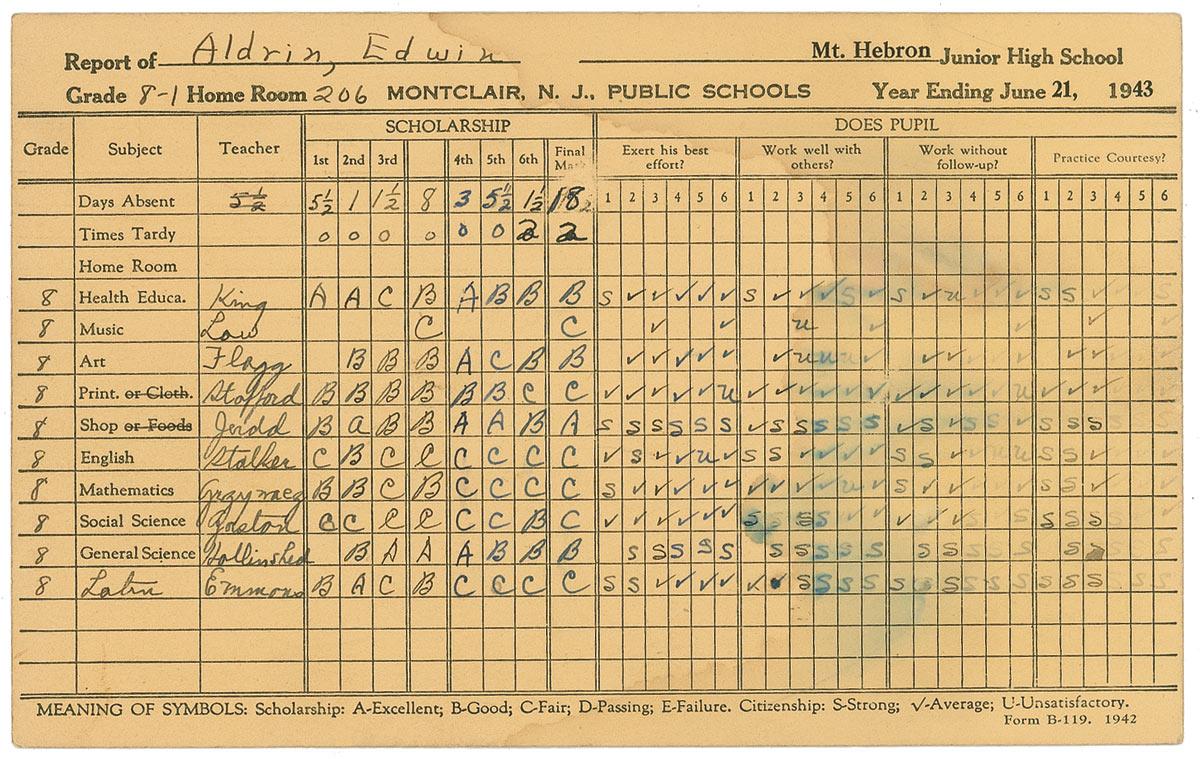 Report of Aldrin, Edwin Mt. Hebron Junior High School
Grade 8-1 Home Room 206 MONTCLAIR, N. J., PUBLIC SCHOOLS Year Ending June 21, 1943
SCHOLARSHIP DOES PUPIL
Grade Subject Teacher 1st 2nd 3rd 4th 5th 6th Final Mark Exert his best effort? Work well with others? Work without follow-up? Practice Courtesy?
1 2 3 4 5 6 1 2 3 4 5 6 1 2 3 4 5 6 1 2 3 4 5 6
Days Absent 5½ 5½ 1 1½ 8 3 5½ 1½ 18
Times Tardy 0 0 0 0 0 0 2 2
Home Room
8 Health Educa. King A A C B A B B B S ✓ ✓ ✓ ✓ ✓ S ✓ ✓ ✓ S ✓ S ✓ u ✓ ✓ ✓ S S ✓ S
8 Music Law C C ✓ ✓ u ✓ ✓ ✓
8 Art Flagg B B B A C B B ✓ ✓ ✓ ✓ ✓ ✓ u u u ✓ ✓ ✓ ✓ ✓
8 Print. or Cloth. Stafford B B B B B B C C ✓ ✓ ✓ ✓ ✓ u ✓ ✓ ✓ ✓ ✓ ✓ ✓ ✓ ✓ ✓ ✓ u ✓ ✓ ✓ ✓ ✓ ✓
8 Shop or Foods Judd B a B B A A B A S S S S S S ✓ S S S S S ✓ S ✓ S S ✓ S S S
8 English Stalker C B C C C C C C ✓ S ✓ ✓ u ✓ S S ✓ ✓ ✓ ✓ S S ✓ ✓ u u S S ✓
8 Mathematics B B C B C C C C S ✓ ✓ ✓ ✓ ✓ ✓ ✓ ✓ ✓ u ✓ S ✓ ✓ S S ✓
8 Social Science C C C C C C B C ✓ ✓ ✓ ✓ ✓ ✓ S S S ✓ ✓ ✓ S S S
8 General Science Hollinshed B A A A B B B S S S S S S S S S S S S S
8 Latin Emmons B A C B C C C C S S ✓ ✓ ✓ ✓ ✓ S S S S S S S S S S S
MEANING OF SYMBOLS: Scholarship: A-Excellent; B-Good; C-Fair; D-Passing; E-Failure. Citizenship: S-Strong; √-Average; U-Unsatisfactory.
Form B-119. 1942